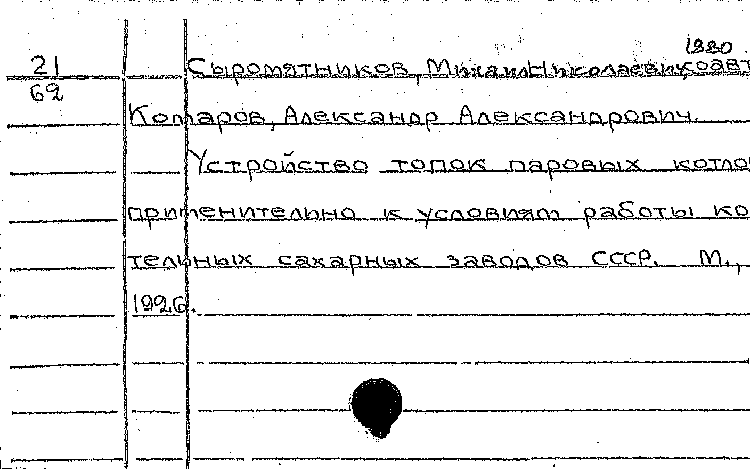 1880
21 Сыромятников, Михаил Николаевич, соавт
69
Комаров, Александр Александрович.
Устройство топок паровых котло
применительно к условиям работы ко
тельных сахарных заводов СССР. М.,
1926.